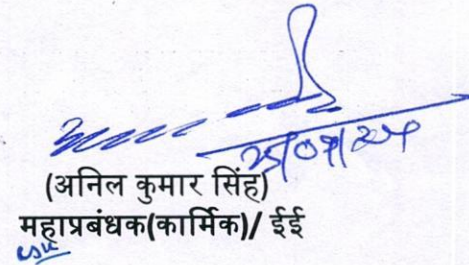 (अनिल कुमार सिंह)
महाप्रबंधक(कार्मिक)/ ईई